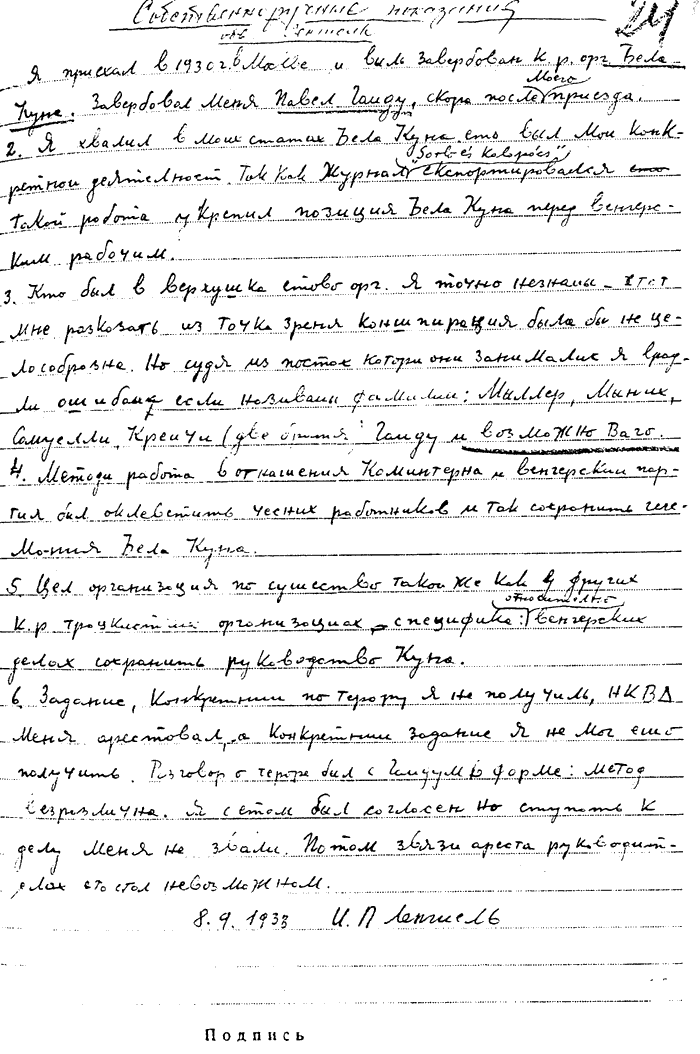 Собственноручные показания
24
Я приехал в 1930 г. в Москве и быль завербован к.р. орг. Бела
Моего
Куна. Завербовал меня Павел Гайду, скора после приезда.
2. Я хвалил в моих статах Бела Куна ето был мои конк-
"Sarló és Kalapács"
ретнои деятелност. Так как Журнал експортировался ето
такой робота укрепил позиция Бела Куна перед венгерс-
ким рабочим.
3. Кто был в верхушка етово орг. я точно незнаиы
мне разковать из точка зреня коншпирация была бы не це-
лособразна. Но судя из постох котори они занималих я вряд-
ли ошибаиф если називаиы фамилии: Миллер, Мыних,
Самуелли, Креичи (две братя) Гаиду и возможно Ваго.
4. Методи работа в отнашения Коминтерна и венгерскии пар-
тия был оклеветить чесних работников и так сохранить геге-
мония Бела Куна.
5 Цел организоция по сушество такои же как в других
относително
к.р. троцкистких организоциах, специфика: венгерских
делах сохранить руководство Куна.
6. Задание, конкретнии по терору я не получиль, НКВД
меня арестовал, а конкретнии задание я не мог ешо
получить. Розговор о терори был с Гаидум в форме: метод
безрезлична. Я с етом был согласен но ступать к
делу меня не звали. Потом звязи ареста руководит-
елах ето стал невозможном.
8. 9. 1938 И. П Ленгиель
Подпись